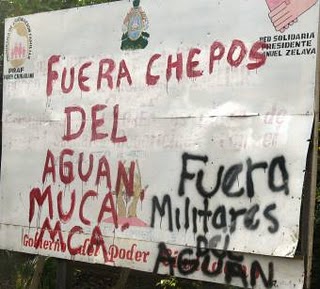 PRAF
RED SOLIDARIA
PRESIDENTE
MANUEL ZELAYA
FUERA CHEPOS
DEL
AGUAN
MUCA
MCA
Fuera
Militares
DEL
AGUAN
Gobierno del Poder